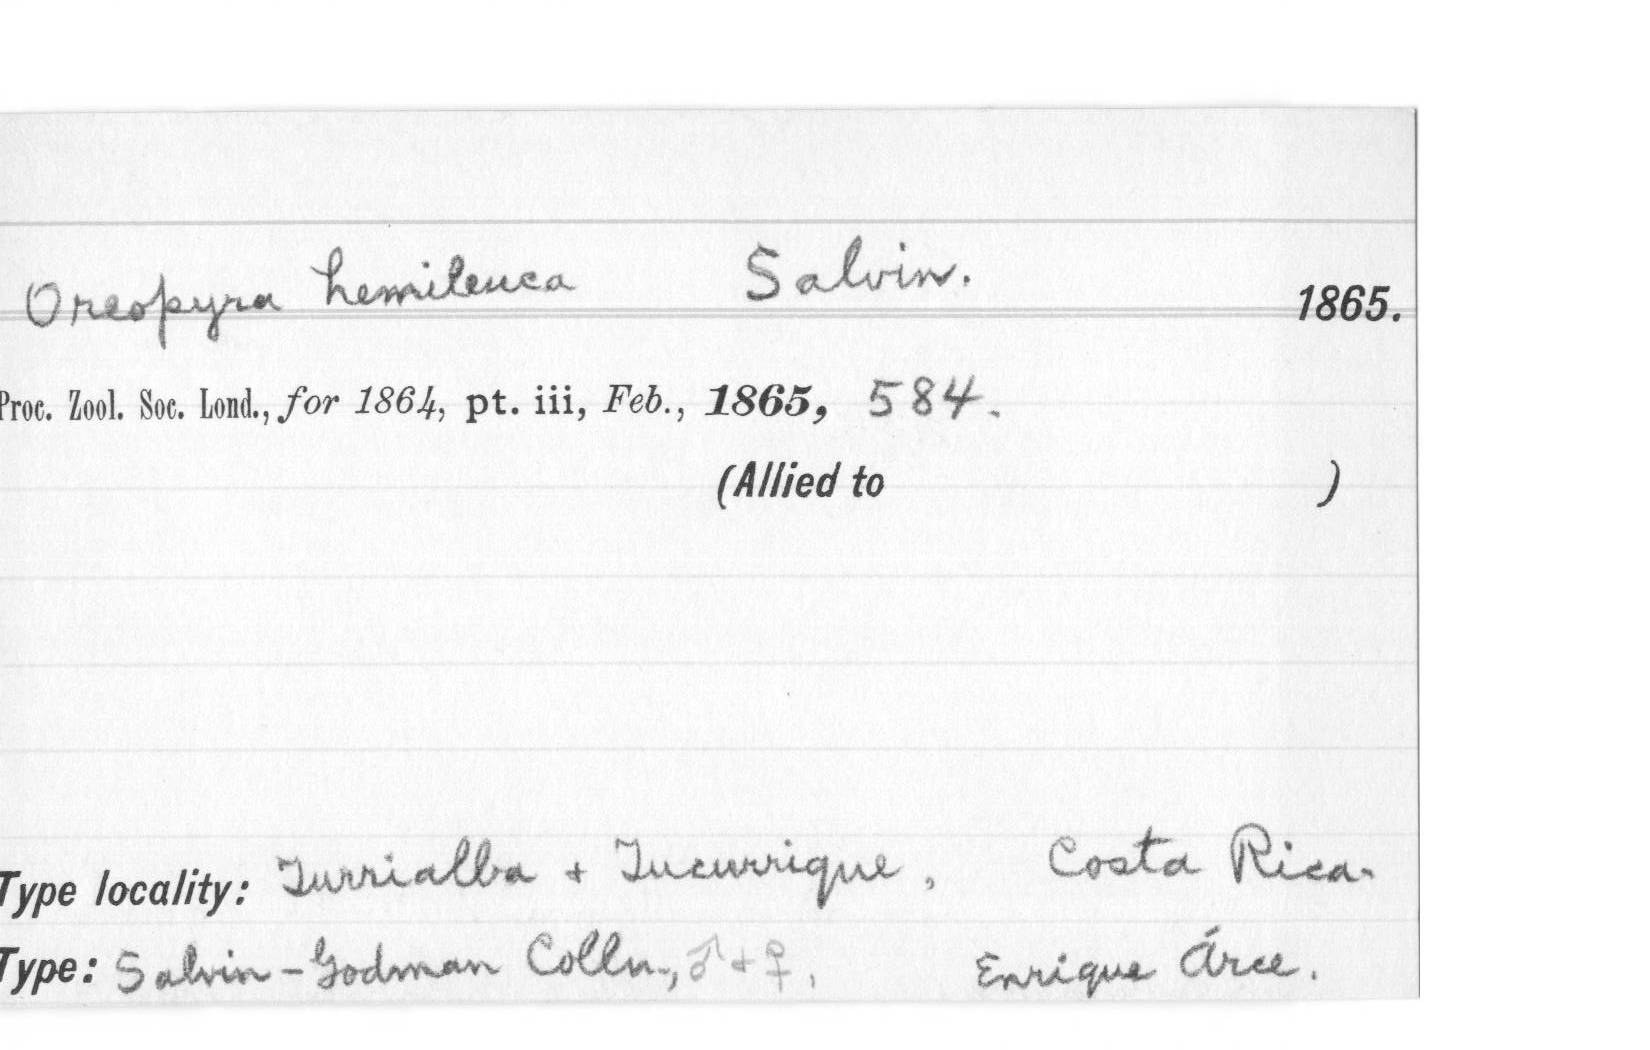 Oreopyra hemileuca Salvin. 1865.
Proc. Zool. Soc. Lond., for 1864, pt. iii, Feb., 1865, 584.
(Allied to )
Type locality: Turrialba + Tucurrique, Costa Rica.
Type: Salvin-Godman Colln., ♂ + ♀, Enrique Árce.